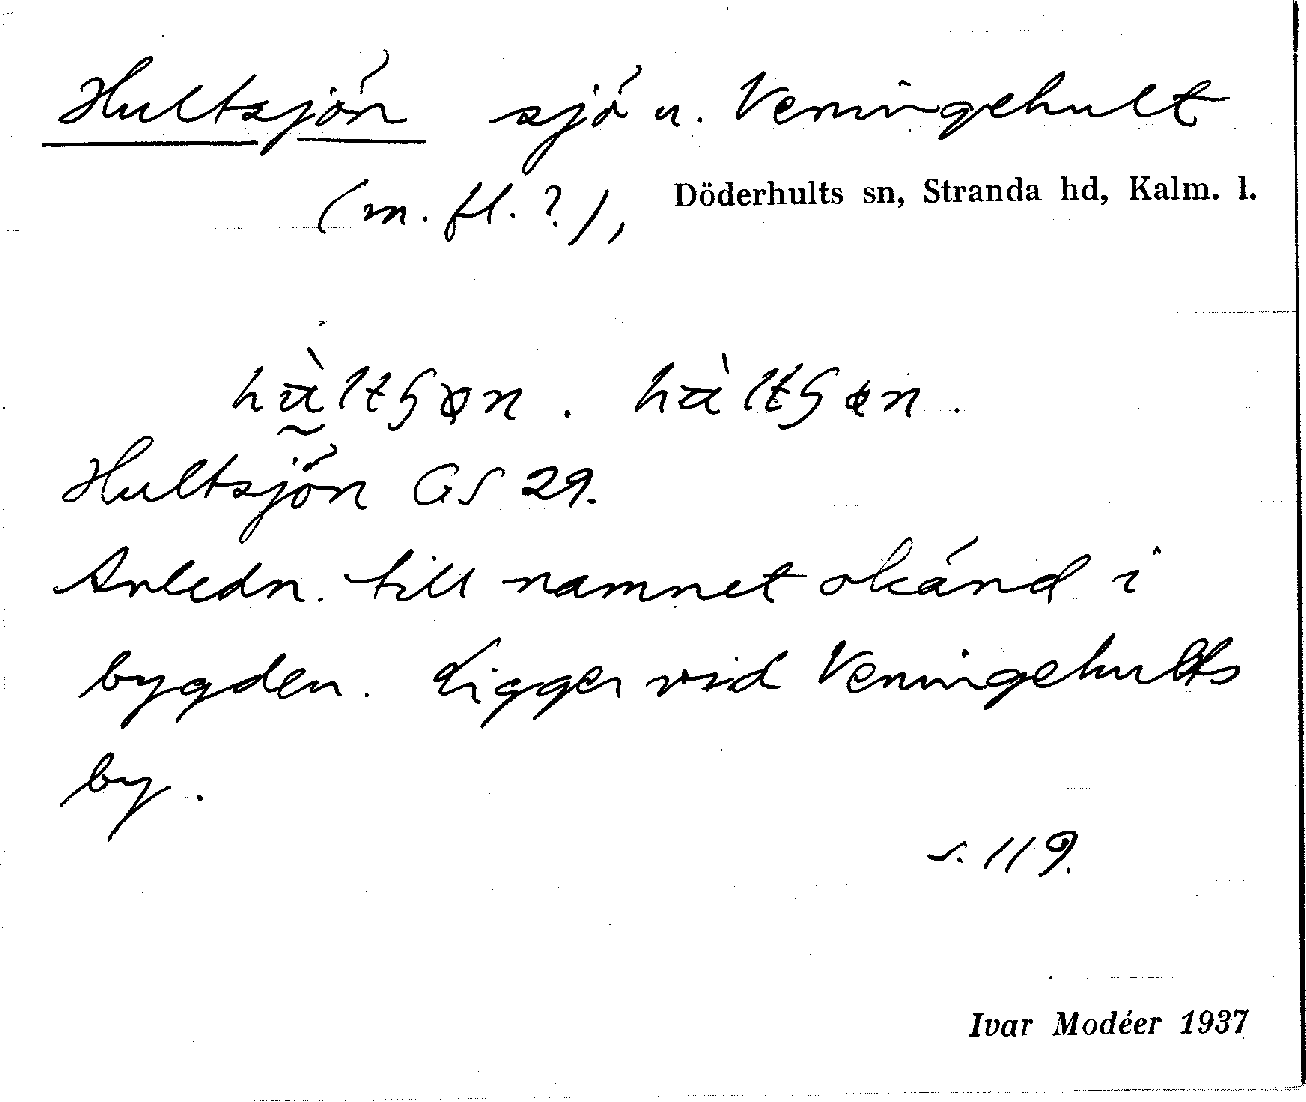 Hultsjön sjö u. Veningehult
(m. fl. ?), Döderhults sn, Stranda hd, Kalm. l.
Hultsjön GS 29.
Anledn. till namnet okänd i
bygden. Ligger vid Veningehults
by.
s. 119.
Ivar Modéer 1937